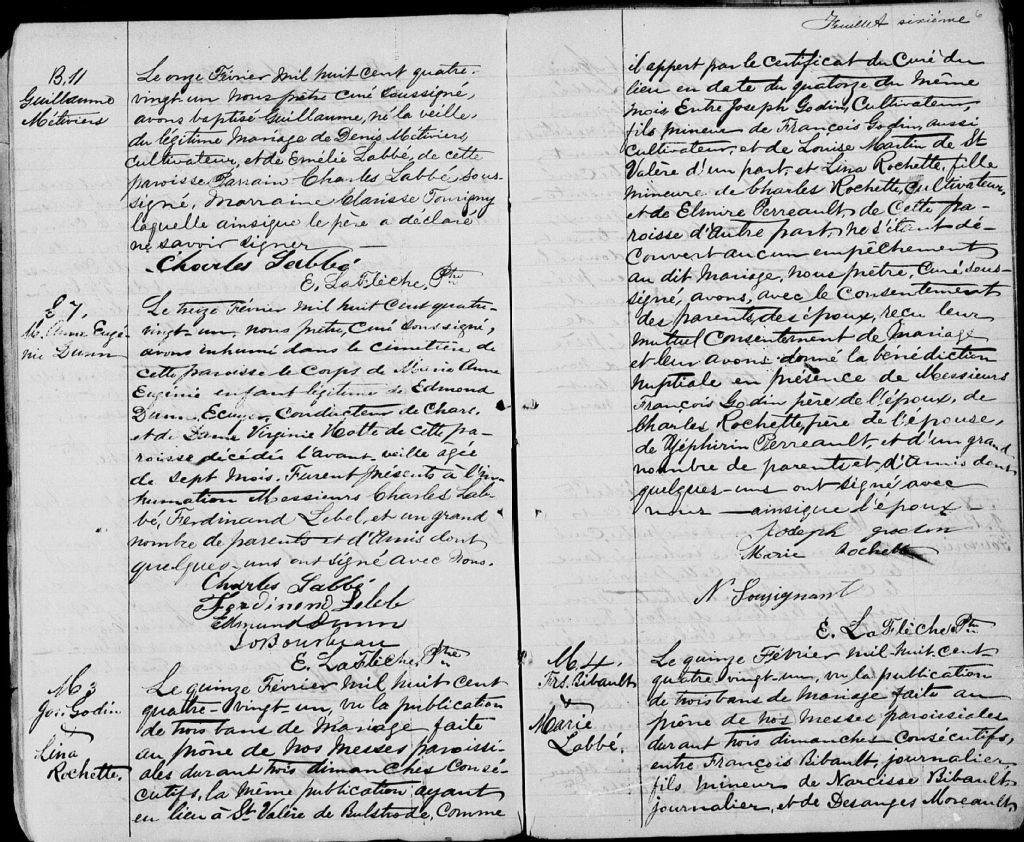 B. 11
Guillaume
Métiviers
Le onze Février mil huit cent quatre-
vingt-un nous prêtre curé soussigné,
avons baptisé Guillaume, né la veille,
du légitime mariage de Denis Métiviers,
cultivateur, et de Emélie Labbé, de cette
paroisse. Parrain Charles Labbé, sous-
signé, Marraine Clarisse Tourigny
laquelle ainsique le père a déclaré
ne savoir signer
Charles Labbé
E. LaFlèche, Ptre
M. Anne Eugé-
nie Dunn
Le treize Février mil huit cent quatre-
vingt-un, nous prêtre, curé soussigné,
avons inhumé dans le cimetière de
cette paroisse le corps de Marie Anne
Eugénie enfant légitime de Edmond
Dunn, Ecuyer, Conducteur de Chars,
et de Dame Virginie Hotte de cette pa-
roisse décédée l'avant-veille agée
de sept mois. Furent présents à l'in-
humation Messieurs Charles Lab-
bé, Ferdinand Lebel, et un grand
nombre de parents et d'amis dont
quelques-uns ont signé avec nous.
Charles Labbé
Ferdinand Lebel
Edmund Dunn
E. LaFlèche, Ptre
M. 3
Jos. Godin
&
Lina
Rochette.
Le quinze Février mil huit cent
quatre-vingt-un, vu la publication
de trois bans de mariage faite
au prône de nos messes paroissi-
ales durant trois dimanches consé-
cutifs, la même publication ayant
eu lieu à St Valère de Bulstrode, comme
Feuillet sixième 6
il appert par le certificat du Curé du
lieu en date du quatorze du même
mois Entre Joseph Godin, Cultivateur,
fils mineur de François Godin, aussi
cultivateur, et de Louise Martin de St
Valère d'un part, et Lina Rochette, fille
mineure de Charles Rochette, Cultivateur,
et de Elmire Perreault de Cette pa-
roisse d'autre part, ne s'étant dé-
couvert aucun empêchement
au dit mariage, nous prêtre, Curé sous-
signé, avons, avec le consentement
des parents, des époux, reçu leur
mutuel consentement de mariage
et leur avons donné la bénédiction
nuptiale en présence de Messieurs
François Godin père de l'époux, de
Charles Rochette, père de l'épouse,
de Zéphirin Perreault et d'un grand
nombre de parents et d'amis dont
quelques-uns ont signé avec
nous — ainsique l'époux
Joseph godin
Marie Rochette
E. LaFlèche, Ptre
M. 4.
Frs. Bibault
&
Marie
Labbé.
Le quinze Février mil huit cent
quatre-vingt-un, vu la publication
de trois bans de mariage faite au
prône de nos messes paroissiales
durant trois dimanches consécutifs,
entre François Bibault, journalier,
fils mineur de Narcisse Bibault
journalier, et de Desanges Moreault,